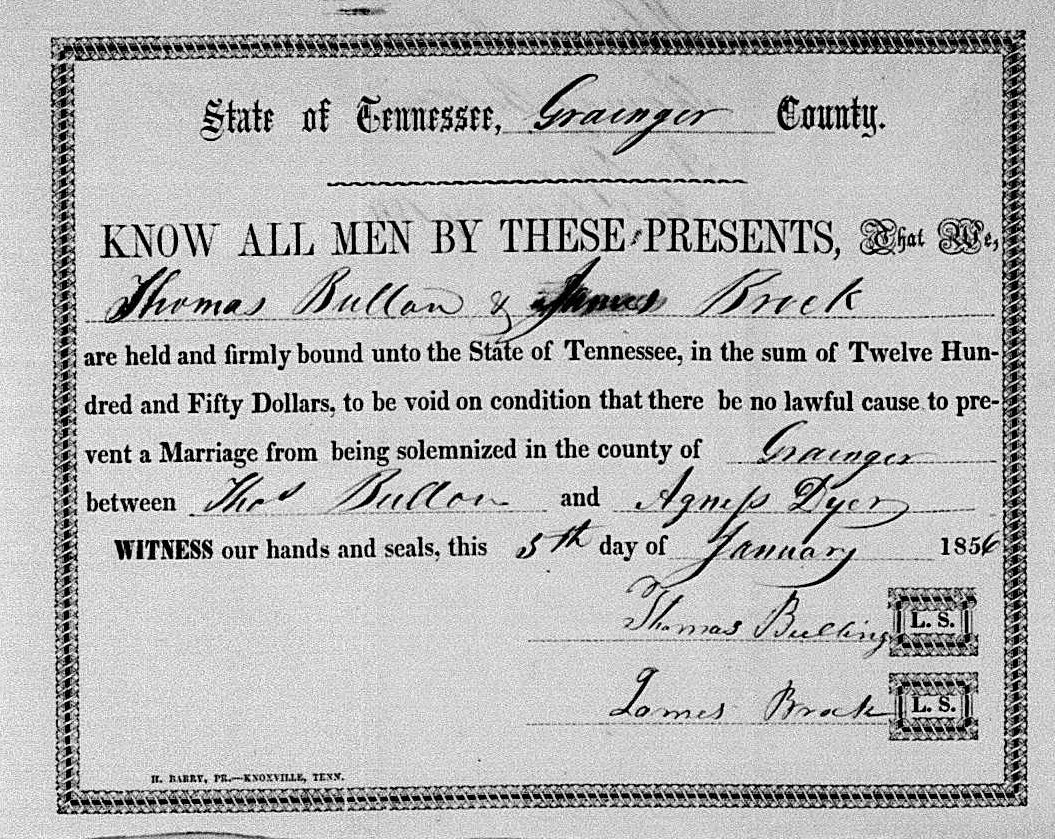 State of Tennessee, Grainger County.
KNOW ALL MEN BY THESE PRESENTS, That We,
Thomas Bullon & James Brock
are held and firmly bound unto the State of Tennessee, in the sum of Twelve Hun-
dred and Fifty Dollars, to be void on condition that there be no lawful cause to pre-
vent a Marriage from being solemnized in the county of Grainger
between Thos Bullon and Agness Dyer
WITNESS our hands and seals, this 5th day of January 1856
Thomas Bulling L. S.
James Brock L. S.
H. BARRY, PR.—KNOXVILLE, TENN.